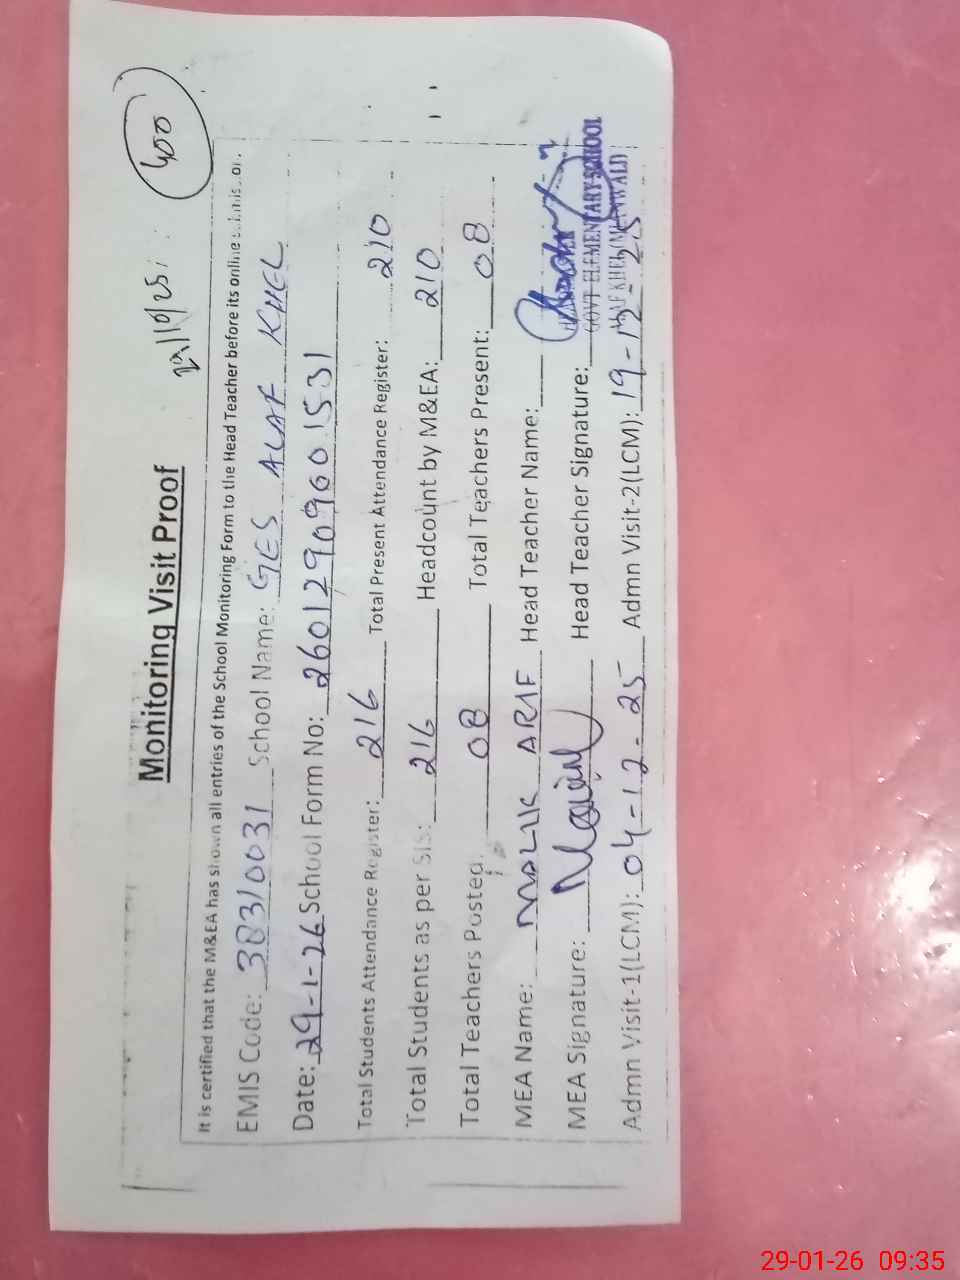 400
29/10/25
Monitoring Visit Proof
It is certified that the M&EA has shown all entries of the School Monitoring Form to the Head Teacher before its online
EMIS Code: 38310031 School Name: GES ALAF KHEL
Date: 29-1-26 School Form No: 2601290960 1531
Total Students Attendance Register: 216 Total Present Attendance Register: 210
Total Students as per SIS: 216 Headcount by M&EA: 210
Total Teachers Posted: 08 Total Teachers Present: 08
MEA Name: MALIK ARIF Head Teacher Name:
MEA Signature: Head Teacher Signature:
GOVT ELEMENTARY SCHOOL
Admn Visit-1(LCM): 04-12-25 Admn Visit-2(LCM): 19-12-25
29-01-26 09:35